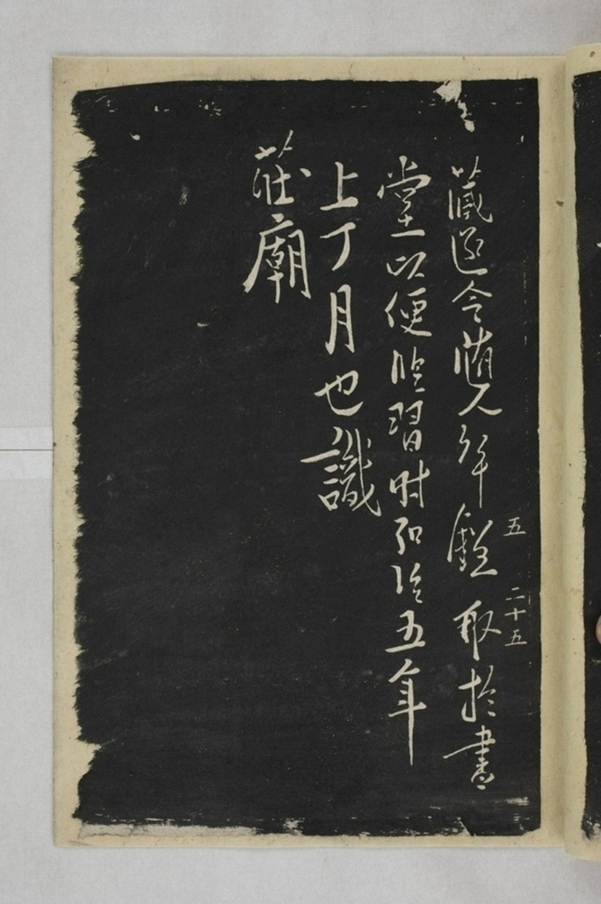 藏 今 人 取於書
五 二十五
堂以便臨習时弘治五年
上丁月也識
莊廟